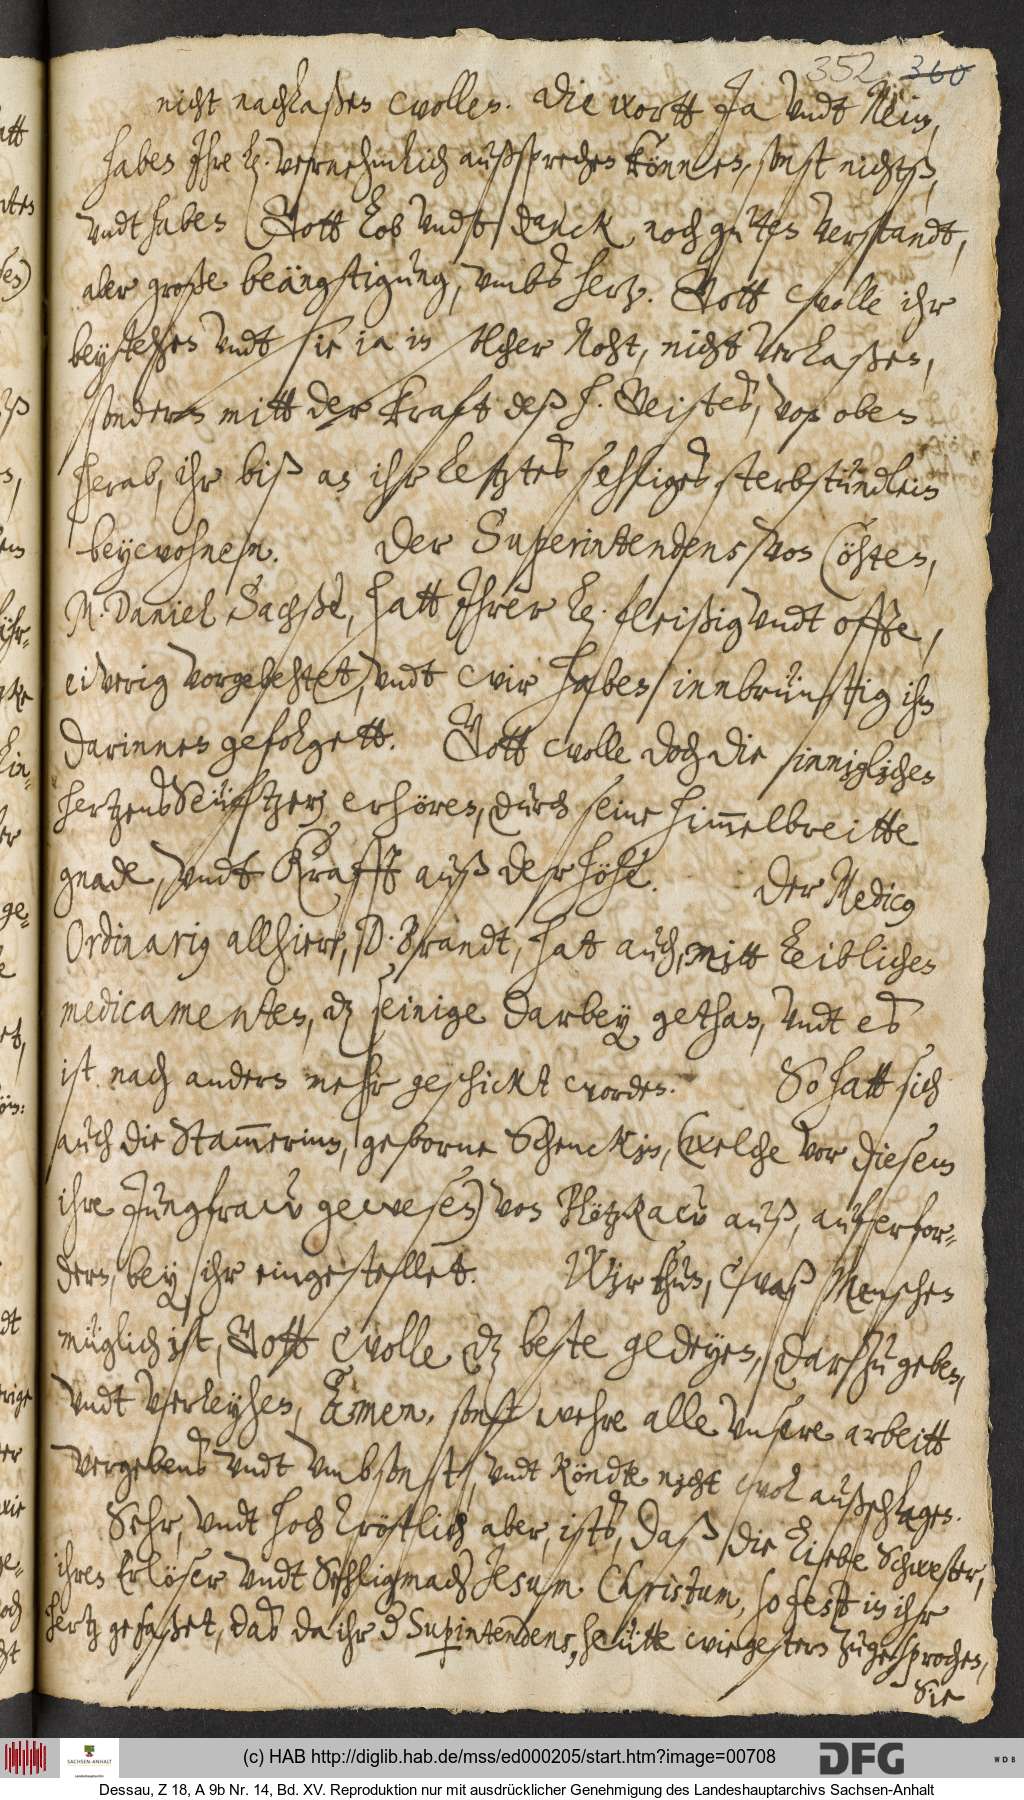 352. 360
nicht nachlaßen wollen. Die wortt Ja vndt Nein,
haben Ihre L. vernehmlich außsprechen können, sonst nichtß,
vndt haben Gott lob vndt danck noch guten verstandt,
aber große beängstigung, vmbs hertz. Gott wolle ihr
beystehen vndt sie ia in solcher Noht, nicht verlaßen,
sondern mitt der kraft deß h. Geistes, von oben
herab, ihr biß an ihr letztes sehliges sterbstündlein
beywohnen. Der Superintendens von Cöhten,
M. Daniel Sachße, hatt Ihrer L. fleißig vndt offte,
eiverig vorgebehtet, vndt wir haben innbrünstig ihm
darinnen gefolgett. Gott wolle doch die sinniglichen
hertzens Seüftzer erhören, durch seine himmelbreitte
gnade, vndt Krafft auß der höhe. Der Medicus
Ordinarius allhier, D. Brandt, hat auch, mitt leiblichen
medicamenten, dz seinige darbey gethan, vndt es
ist nach andern mehr geschickt worden. So hatt sich
auch die Stammerinn, geborne Schenckin, (welche vor diesem
ihre Jungfraw gewesen) von Plötzkaw auß, auf erfor-
dern, bey ihr eingestellet. Wir thun, waß Menschen
müglich ist, Gott wolle dz beste gedeyen, darzu geben,
vndt verleyhen, Amen. sonst wehre alle vnsere arbeitt
vergebens vndt vmbsonst, vndt köndte nicht wol außschlagen.
Sehr, vndt hoch tröstlich aber, ists, daß die liebe Schwester,
ihren Erlöser vndt Sehligmacher Jesum Christum, so fest in ihr
hertz gefaßet, das da ihr d Supintendens, heütte wie gestern zugesprochen,
Sie
(c) HAB http://diglib.hab.de/mss/ed000205/start.htm?image=00708
SACHSEN-ANHALT
DFG
WDB
Dessau, Z 18, A 9b Nr. 14, Bd. XV. Reproduktion nur mit ausdrücklicher Genehmigung des Landeshauptarchivs Sachsen-Anhalt